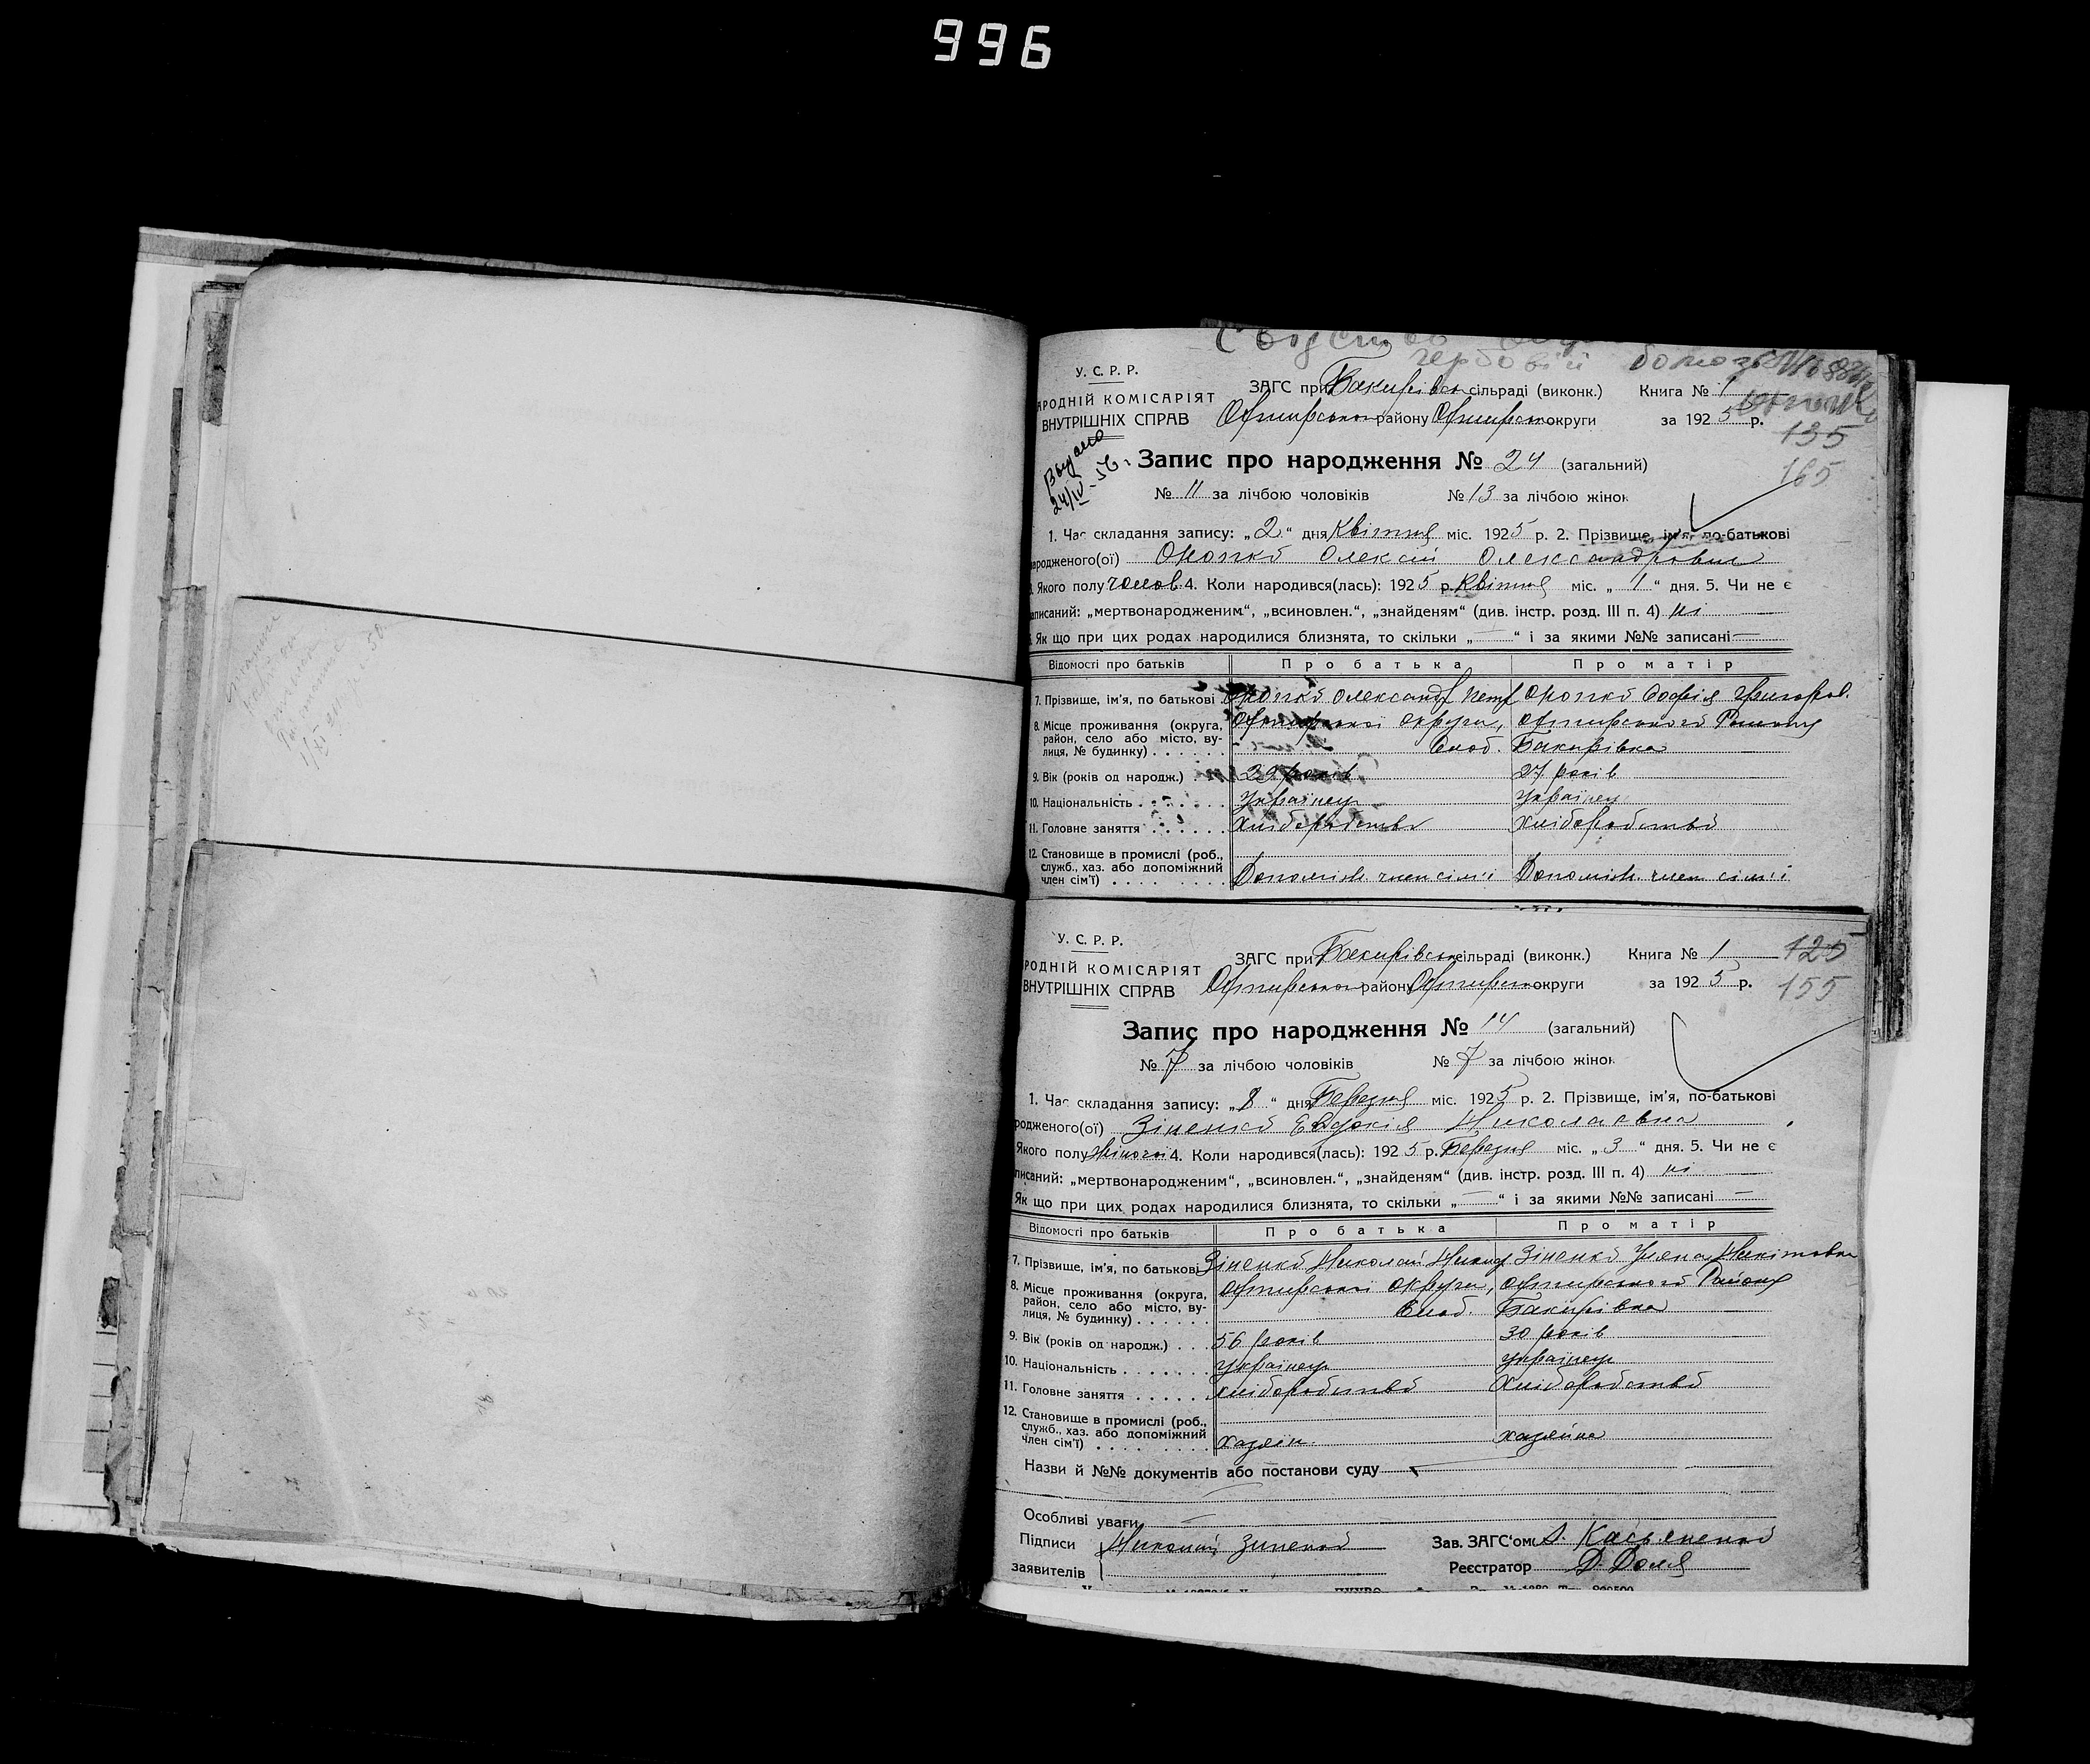 996
У. С. Р. Р.
АРОДНІЙ КОМІСАРІЯТ
ВНУТРІШНІХ СПРАВ
ЗАГС при Бакирівськ сільраді (виконк.)
Книга № 1
району округи
за 1925 р.
135
165
Выдано
24/IV-56.
Запис про народження № 24 (загальний)
№ 11 за лічбою чоловіків № 13 за лічбою жінок
1. Час складання запису: „2“ дня Квітня міс. 1925 р. 2. Прізвище, ім'я, по-батькові
ародженого(ої) Олексій Олександрович
Якого полу чолов. 4. Коли народився(лась): 1925 р. Квітня міс. „1“ дня. 5. Чи не є
аписаний: „мертвонародженим“, „всиновлен.“, „знайденям“ (див. інстр. розд. III п. 4) ні
Як що при цих родах народилися близнята, то скільки „—“ і за якими №№ записані —
Відомості про батьків Про батька Про матір
7. Прізвище, ім'я, по батькові Олександр Петр Софія Григоров.
8. Місце проживання (округа, округи, Району
район, село або місто, ву-
лиця, № будинку) . . . . . Слоб. Бакирівка
9. Вік (років од народж.) . 29 років 27 років
10. Національність . . . . . . . Українец Українец
11. Головне заняття . . . . . . Хліборобство Хліборобство
12. Становище в промислі (роб.,
служб., хаз. або допоміжний
член сім'ї) . . . . . . . . Допоміж. член сім'ї Допоміж. член сім'ї
У. С. Р. Р.
РОДНІЙ КОМІСАРІЯТ
ВНУТРІШНІХ СПРАВ
ЗАГС при Бакирівськ сільраді (виконк.)
Книга № 1
району округи
за 1925 р.
125
155
Запис про народження № 14 (загальний)
№ 7 за лічбою чоловіків № 7 за лічбою жінок
1. Час складання запису: „8“ дня Березня міс. 1925 р. 2. Прізвище, ім'я, по-батькові
родженого(ої) Зіненко Евдокія Николаевна
Якого полу жіночої 4. Коли народився(лась): 1925 р. Березня міс. „3“ дня. 5. Чи не є
писаний: „мертвонародженим“, „всиновлен.“, „знайденям“ (див. інстр. розд. III п. 4) ні
Як що при цих родах народилися близнята, то скільки „—“ і за якими №№ записані —
Відомості про батьків Про батька Про матір
7. Прізвище, ім'я, по батькові Зіненко Николай Зіненко Уляна Никітовна
8. Місце проживання (округа, округи, Району
район, село або місто, ву-
лиця, № будинку) . . . . . . Слоб. Бакирівка
9. Вік (років од народж.) . . . 56 років 30 років
10. Національність . . . . . . . українец українец
11. Головне заняття . . . . . . хліборобство Хліборобство
12. Становище в промислі (роб.,
служб., хаз. або допоміжний
член сім'ї) . . . . . . . . . хазяїн хазяйка
Назви й №№ документів або постанови суду
Особливі уваги
Підписи Николай Зиненко Зав. ЗАГС'ом А. Касьяненко
заявителів Реєстратор Д. Доля